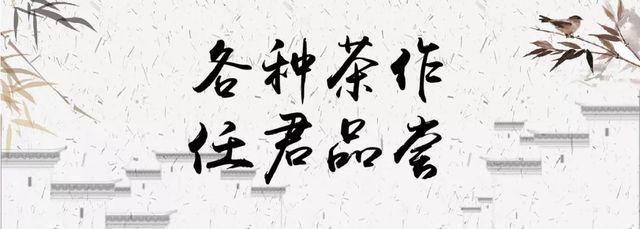 各种茶作
任君品尝